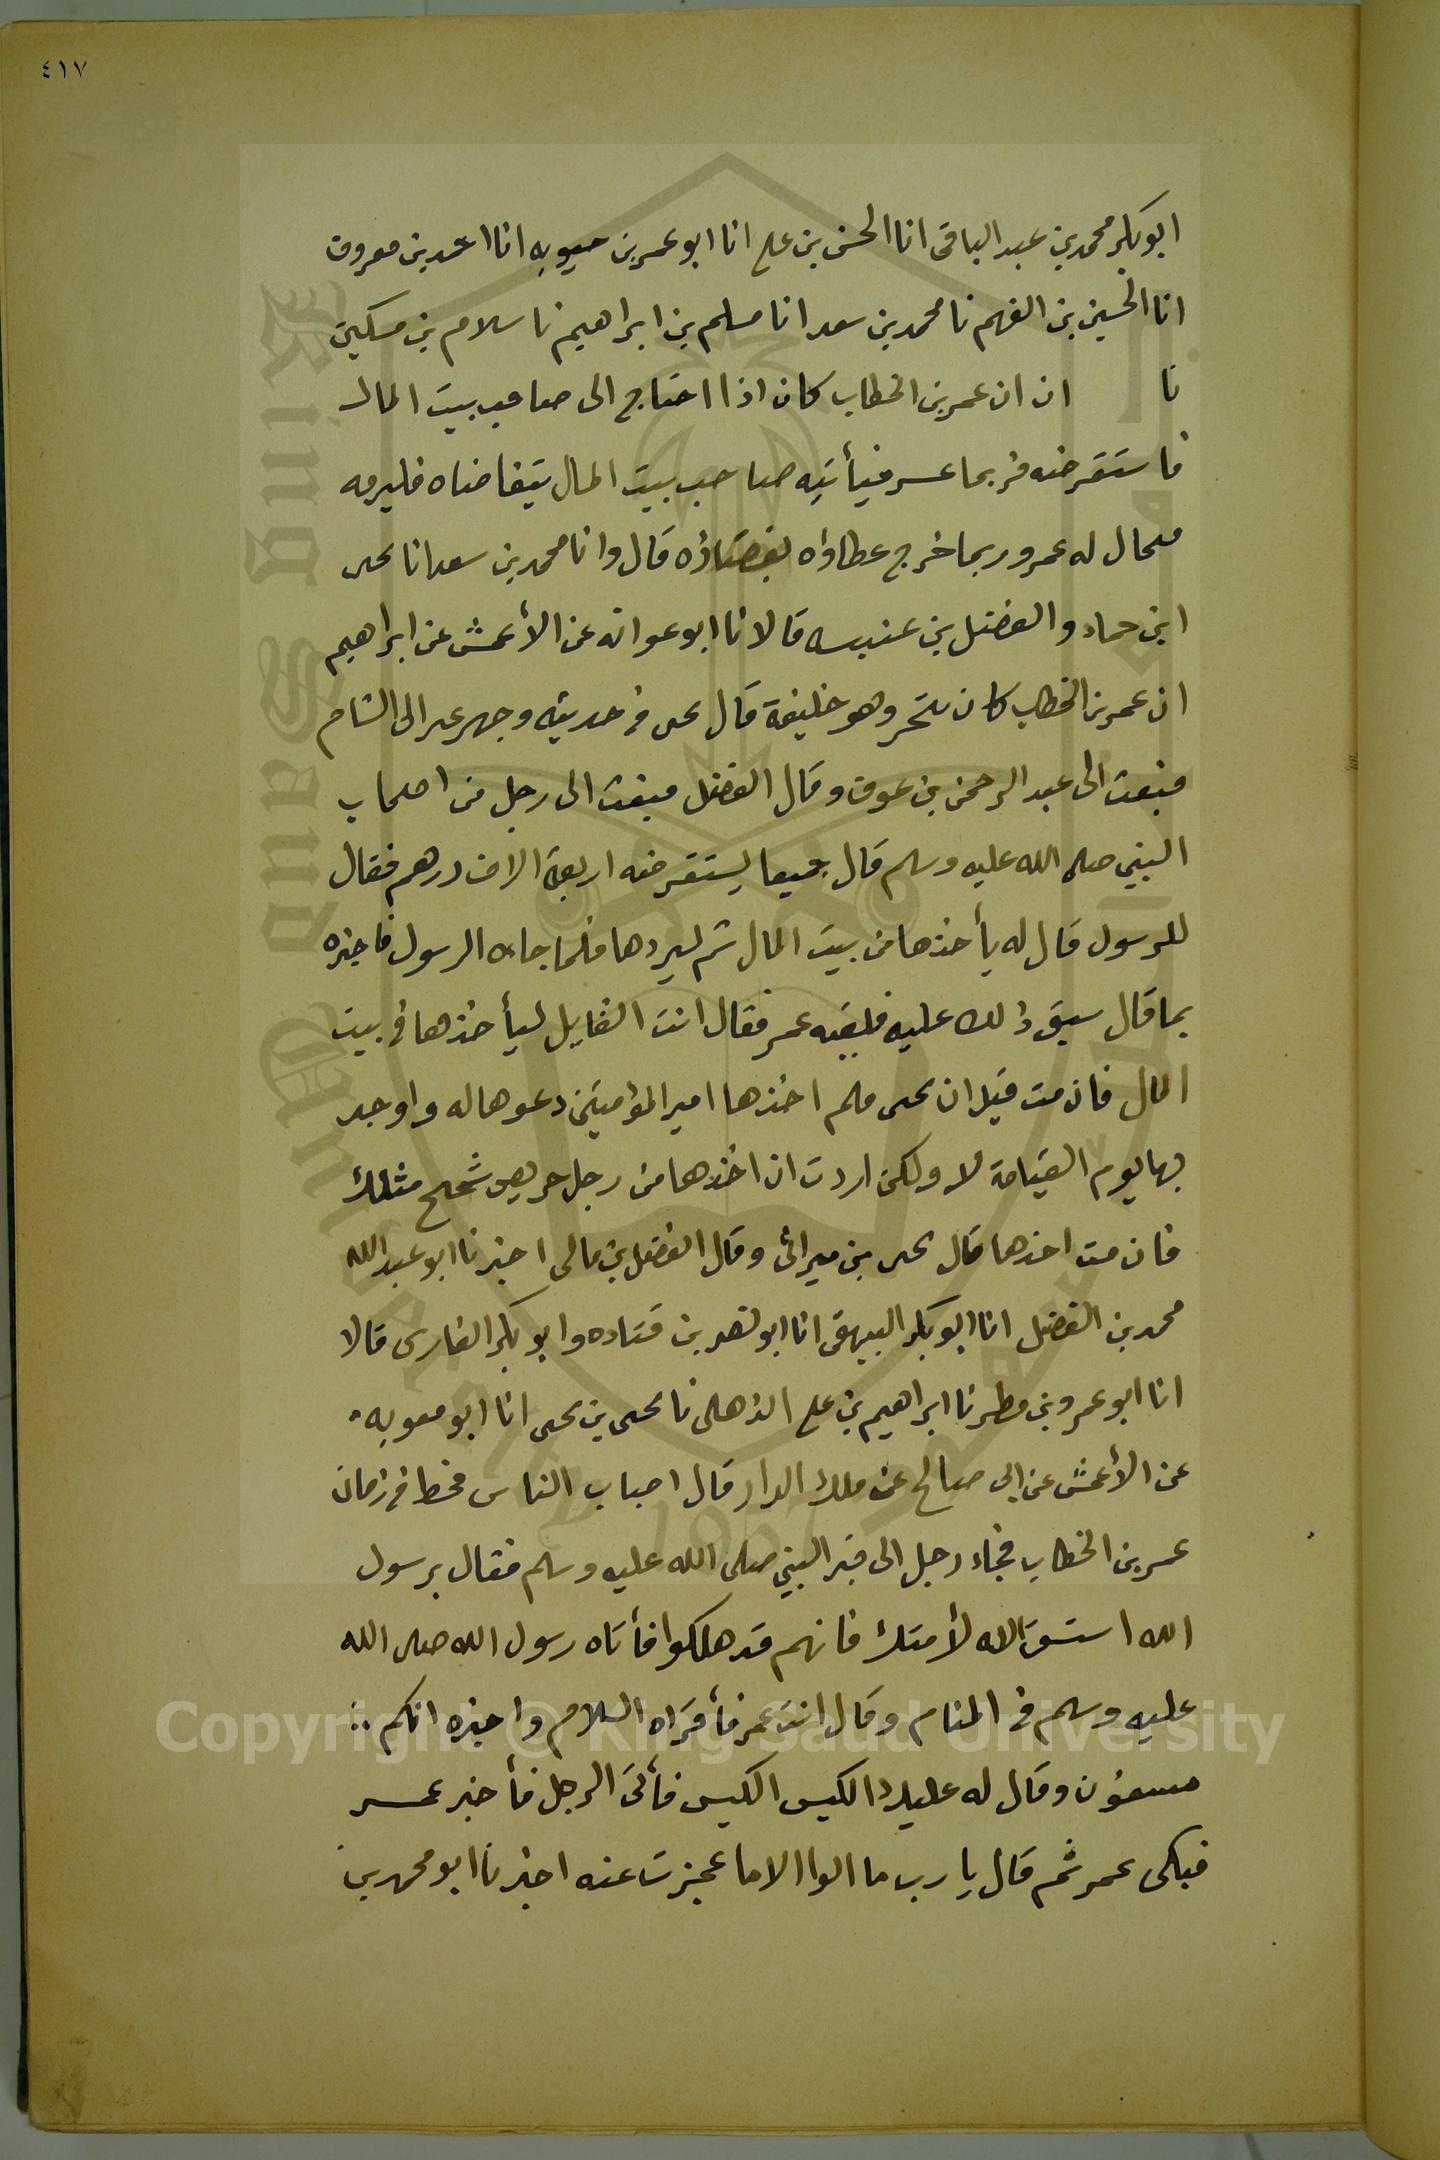 ٤١٧
ابو بكر محمد بن عبد الباقى انا الحسن بن على انا ابو عمر بن حيويه انا احمد بن معروف
انا الحسين بن الفهم نا محمد بن سعد انا مسلم بن ابراهيم نا سلام بن مسكين
نا ان ان عمر بن الخطاب كان اذا احتاج الى صاحب بيت المال
فاستقرضه فربما عسر فيأتيه صاحب بيت المال يتقاضاه فليرمه
محال له عمر وربما خرج عطاوٓه قال وانا محمد بن سعد انا يحيى
ابن حماد والفضل بن عنبسه قالا نا ابو عوانه عن الأعمش عن ابراهيم
ان عمر بن الخطاب كان يتجر وهو خليفة قال يحيى فى حديثه وجهز عير الى الشام
فبعث الى عبد الرحمن بن عوف وقال الفضل فبعث الى رجل من اصحاب
النبي صلى الله عليه وسلم قال جميعا يستقرضه اربعة الاف درهم فقال
للرسول قال له يأخذها من بيت المال ثم ليردها فلما جاءه الرسول فاخبره
بما قال سبق ذلك عليه فلقيه عمر فقال انت القايل ليأخذها فى بيت
المال فان مت قبل ان يحى ملم اخذها امير المؤمنين دعوها له واوجد
بها يوم القيامة لا ولكن اردت ان اخذها من رجل حريص شحيح مثلك
فان مت اخذها قال يحيى من ميراثى وقال الفضل من مالى اخبرنا ابو عبد الله
محمد بن الفضل انا ابو بكر البيهقى انا ابو نصر بن قتاده وابو بكر الفارسى قالا
انا ابو عمرو بن مطر نا ابراهيم بن على الذهلى نا يحيى بن يحيى انا ابو معويه
عن الأعمش عن ابى صالح عن ملك الدار قال اصاب الناس قحط فى زمان
عمر بن الخطاب فجاء رجل الى قبر النبي صلى الله عليه وسلم فقال يرسول
الله استسق الله لأمتك فانهم قد هلكوا فأتاه رسول الله صلى الله
عليه وسلم فى المنام وقال ائت عمر فأقراه السلام واخبره انكم
مسقون وقال له عليك الكيس الكيس فأتى الرجل فأخبر عمر
فبكى عمر ثم قال يا رب ما الوا الا ما عجزت عنه اخبرنا ابو محمد بن
Copyright © King Saud University